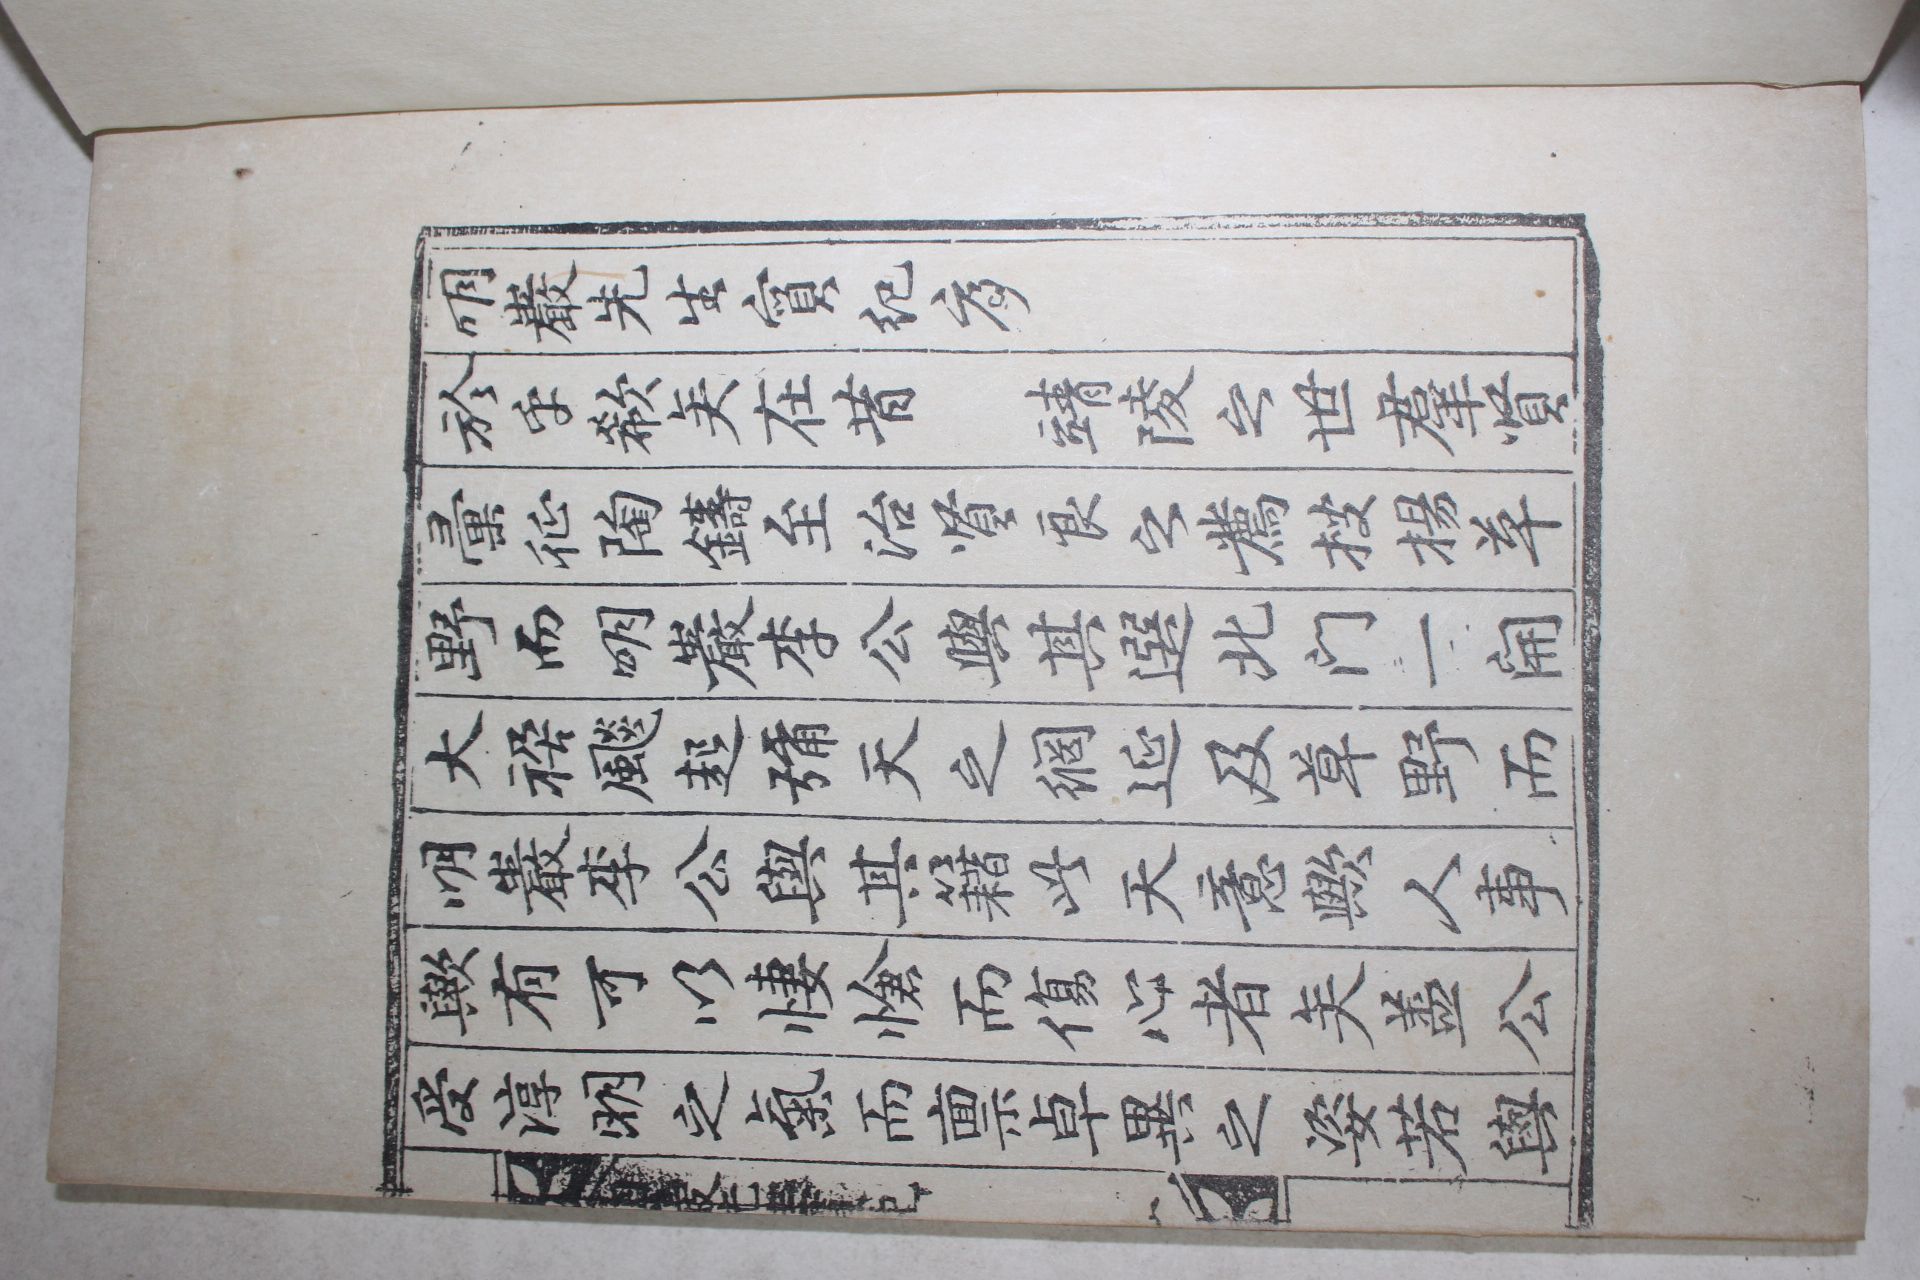 明巖先生實紀序
於乎欷矣在昔 靖陵之世羣賢
彙征陶鑄至治賢良之薦搜揚草
野而明巖李公與其選北門一開
大禍飇起彌天之網延及草野而
明巖李公與其籍此天意歟人事
歟有可以悽愴而傷心者矣盖公
受淳明之氣而禀卓異之姿若與